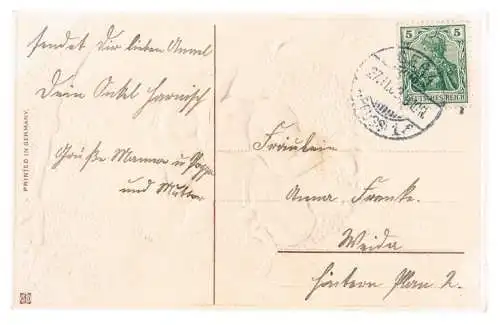 sendet dir lieben Annel
Dein Onkel Harnisch
Grüße Mamma u Pappa
und Mutter
PRINTED IN GERMANY.
5 5
DEUTSCHES REICH
Fräulein
Anna Franke.
Weida
Hintern Plan 2.